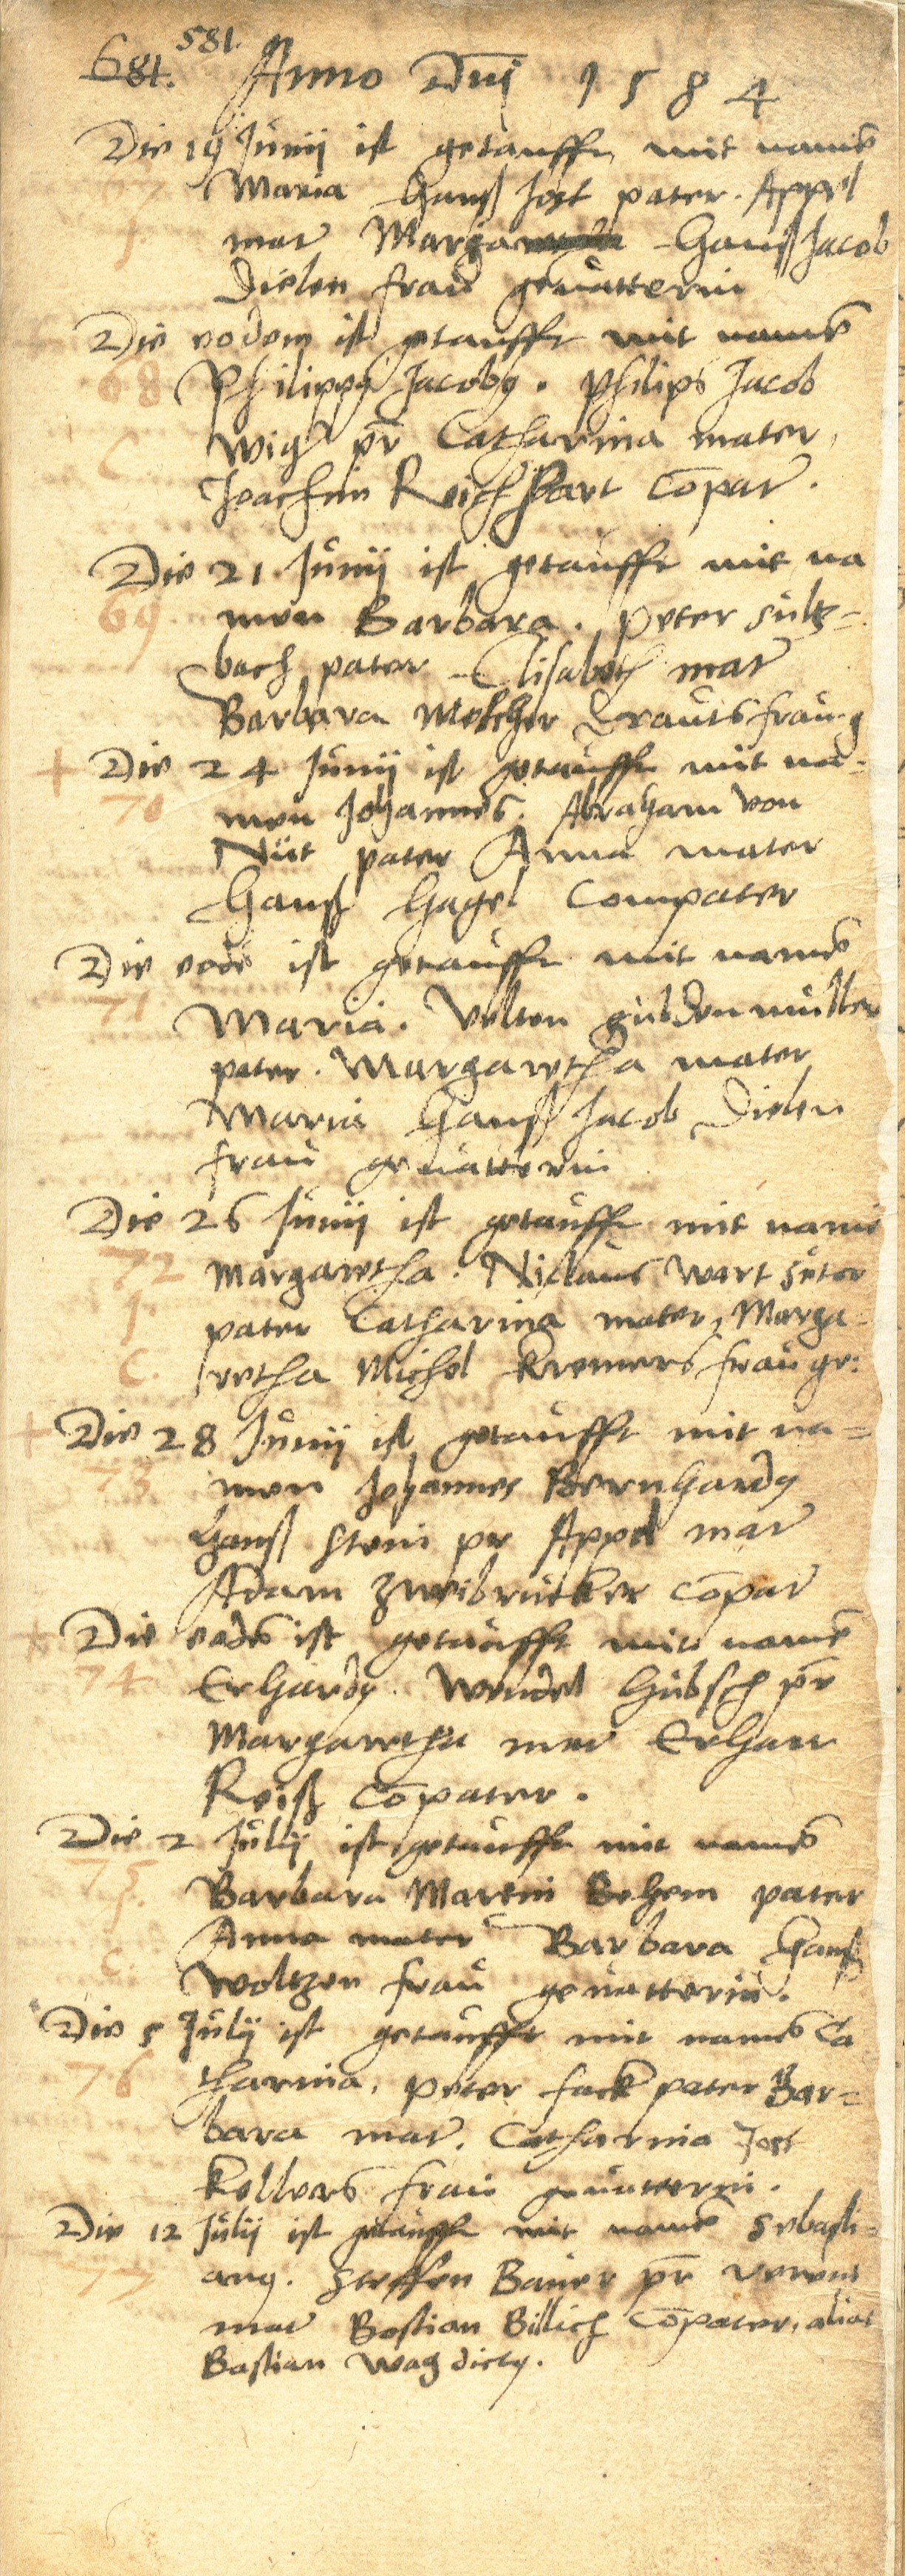 681. 581. Anno Dnj 1584
Die 19 Junij ist getaufft mit name
67 Maria Hanß Jost pater. Appel
f. mar Marga Hanß Jacob
Dielen frau gevatterin
Die eodem ist getaufft mit name
68 Philippy Jacoby. Philips Jacob
C pr Catharina mater,
Joachim Reichhart compar.
Die 21 Junij ist getaufft mit na
69 men Barbara. Peter Sultz=
bach pater Elisabeth mar
Barbara Melcher Krauts frau g
+ Die 24 Junij ist getaufft mit na=
70 men Johannes. Abraham von
pater Anna mater
Hanß Hagel Compater
Die eode ist getaufft mit name
71 Maria. Velten guldenmuller
pater. Margaretha mater
Maria Hanß Jacob Dielen
frau gevatterin
Die 26 Junij ist getaufft mit name
72 Margaretha. Niclaus
f. pater Catharina mater, Marga=
C. retha Michel Kremers frau ge:
+ Die 28 Junij ist getaufft mit na=
73 men Johannes Bernhardy
Hanß Stein pr Appel mar
Adam Zweibrucker compar
+ Die eode ist getaufft mit name
74 Erhardy. Wendel Hubsch pr
Margaretha mar Erhart
Reiß compater.
Die 2 Julij ist getaufft mit name
75 Barbara Martin Behem pater
C Anna mater Barbara Hanß
Woltzen frau gevatterin.
Die 5 Julij ist getaufft mit name Ca
76 tharina, Peter fack pater Bar=
bara mar. Catharina Jost
Kellers frau gevatterin.
Die 12 Julij ist getaufft mit name Sebasti=
77 any. Steffen Bauer pr
mar Bastian Billich compater, alias
Bastian Wag dicty.